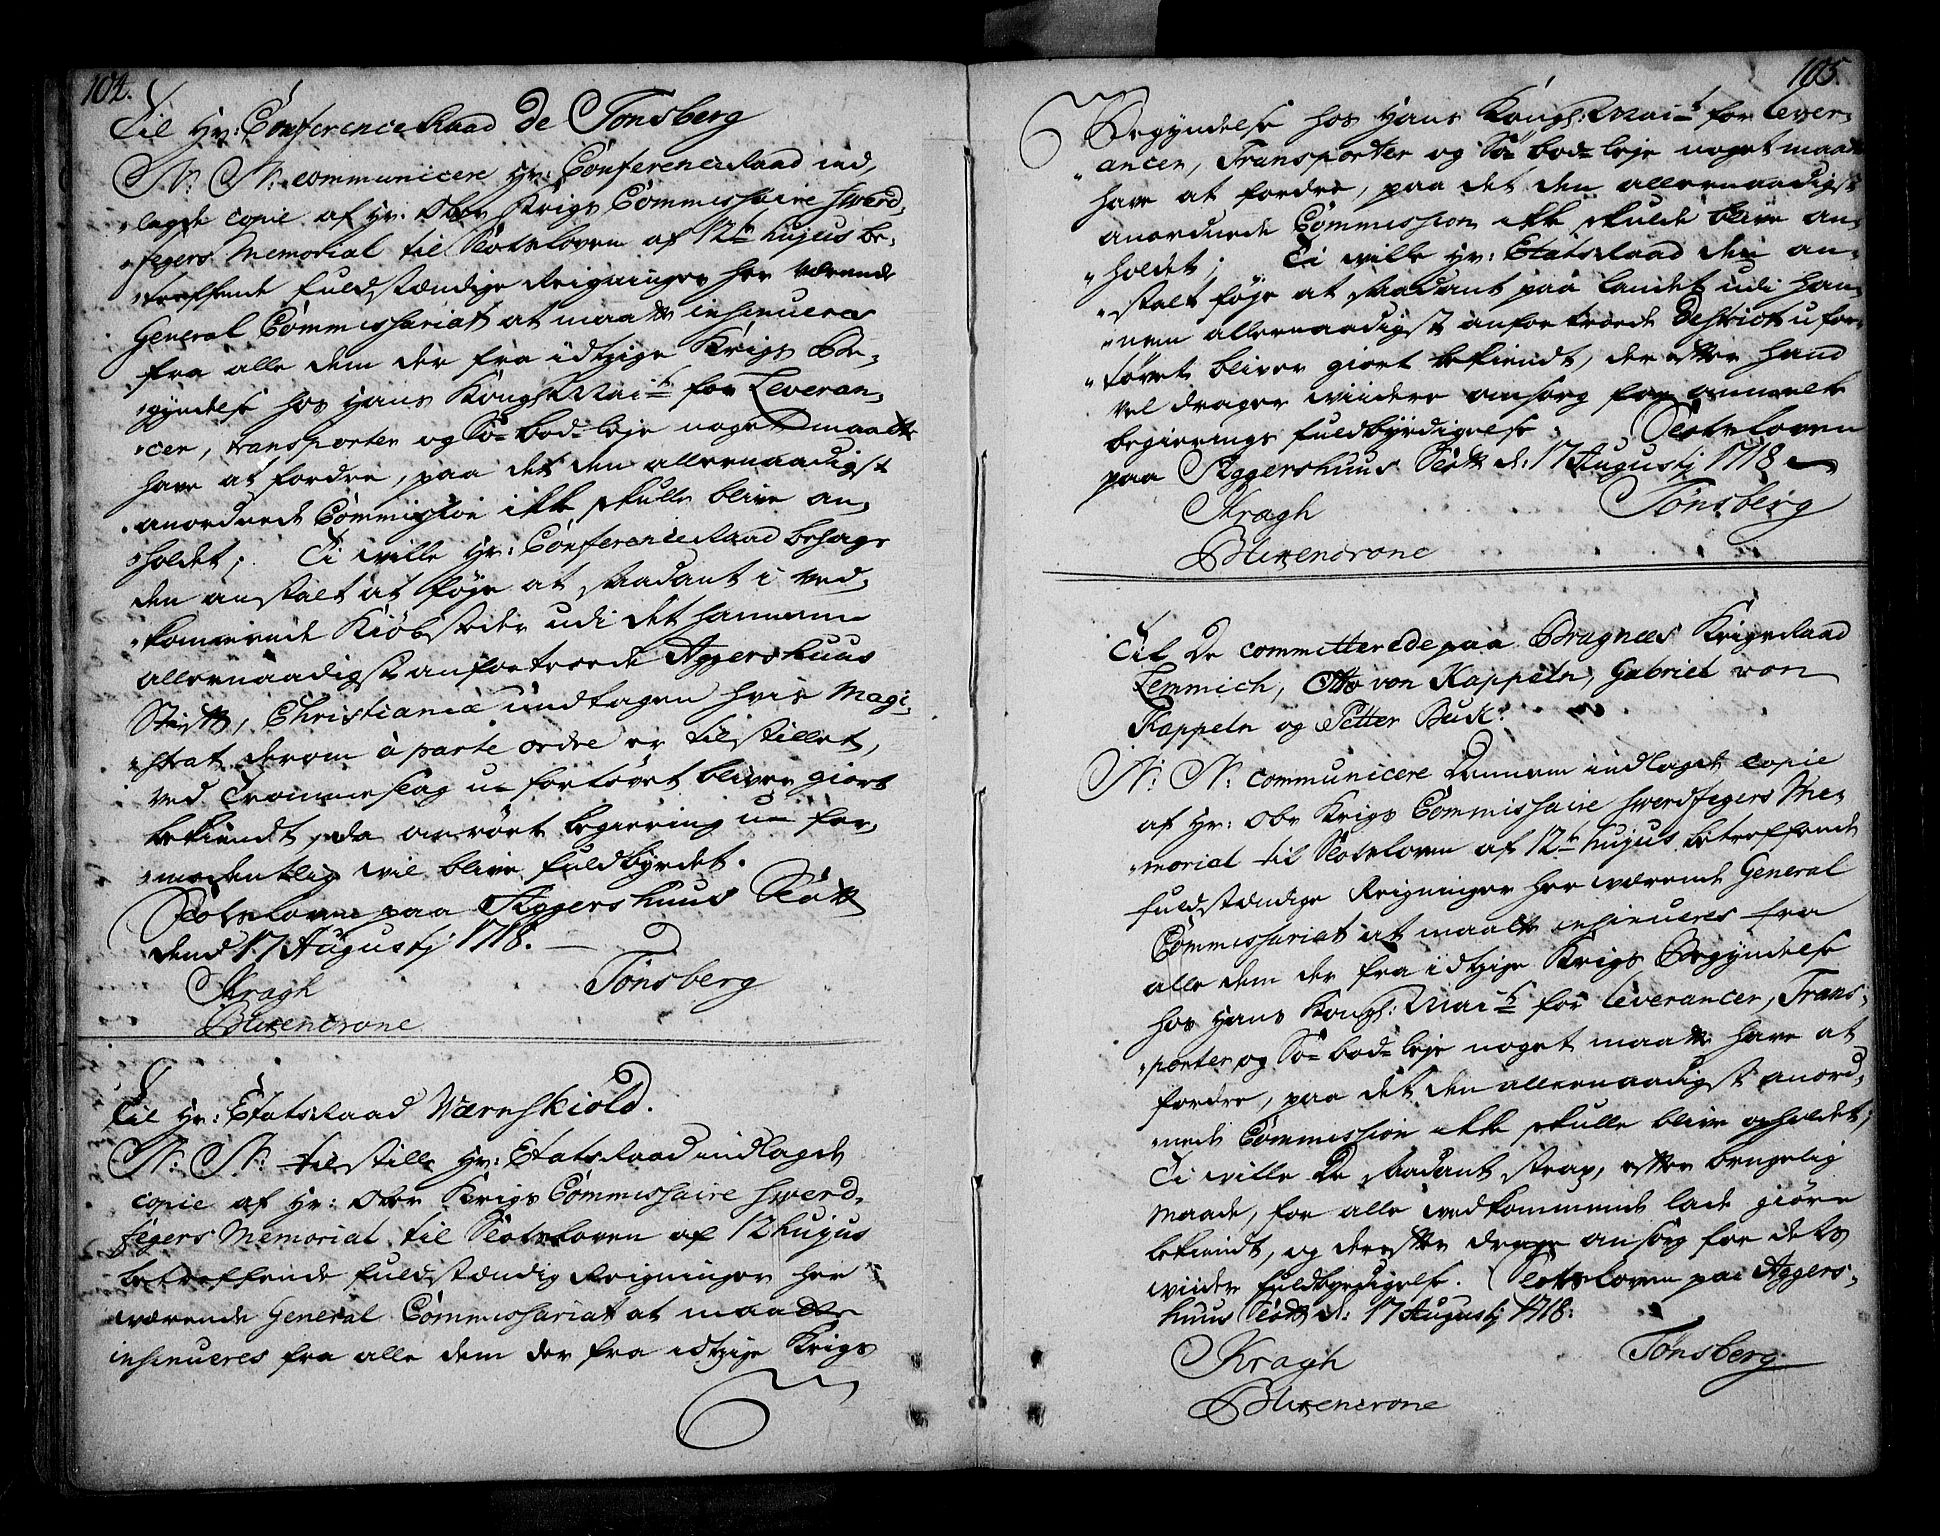 104.
Til Hr: Conference Raad De Tonsberg
N: N: communicere Hr: Conference Raad ind,
lagde copie af Hr: Ober Krigs Commissaire Swerd,
fegers Memorial til Slotsloven af 12te hujus be,
treffende fuldstændige Reigninger her værende
General Commissariat at maatte insinueres
fra alle dem der fra idtzige Krigs Be,
gyndelse hos Hans Kongl: Mait for Leveran,
cer, transporter og Sö- bod- leje noget maatte
have at fordre, paa det den allernaadigst
anordnede Commission ikke skulle blive op,
holdet; Ti wille Hr: Conference Raad behage
den anstalt at föje at saadant i ved,
kommende Kiöbstæder udi det hannem
allernaadigst anfortroede Aggershuus
Stift, Christiania undtagen hvis Magi,
strat derom à parte ordre er tilstillet,
ved Trommeslag ufortövet bliver giort
bekiendt, da anrört begiering ufor,
modentlig wil blive fuldbyrdet.
Slotsloven paa Aggershuus Slott
dend 17 Augustj 1718.
Kragh Tonsberg
Blixencrone
Til Hr: Etats Raad Wærnskiold.
N: N: tilstille Hr: Etats Raad indlagde
copie af Hr: Ober Krigs Commissaire Swerd,
fegers Memorial til Slotsloven af 12 hujus
betreffende fuldstændig Reigninger her
værende General Commissariat at maatte
insinueres fra alle dem der fra idtzige Krigs
105.
Begyndelse hos Hans Kongl: Mait for Lever,
ancer, Transporter og Sö- bod- leje noget maatte
have at fordre, paa det den allernaadigst
anordnede Commission ikke skulde blive op,
holdet; Ti wille Hr: Etats Raad den an,
stalt föje at saadant paa landet udi han,
nem allernaadigst anfortroede District ufor,
tövet bliver giort bekiendt, der efter hand
vel drager widere omsorg for anmelte
begierings fuldbyrdigelse. Slotsloven
paa Aggershuus Slott d: 17 Augustj 1718
Kragh Tonsberg
Blixencrone
Til De committerede paa Bragnees Krigs Raad
Lemmich, Otto von Kappeln, Gabriel von
Kappeln og Petter Buch.
N: N: communicere Dennem indlagde copie
af Hr: Ober Krigs Commissaire Swerdfegers Me,
morial til Slotsloven af 12te hujus betreffende
fuldstændige Reigninger her værende General
Commissariat at maatte insinueres fra
alle dem der fra idtzige Krigs Begyndelse
hos Hans Kongl: Mait for leverancer, Trans,
porter og Sö- bod- leje noget maatte have at
fordre, paa det den allernaadigst anord,
nede Commission ikke skulle blive opholdet;
Ti wille De saadant strax, efter brugelig
Maade, for alle vedkommende lade giöre
bekiendt, og derefter drage omsorg for dets
widere fuldbyrdigelse. Slotsloven paa Aggers,
huus Slott d: 17 Augustj 1718.
Kragh Tonsberg
Blixencrone